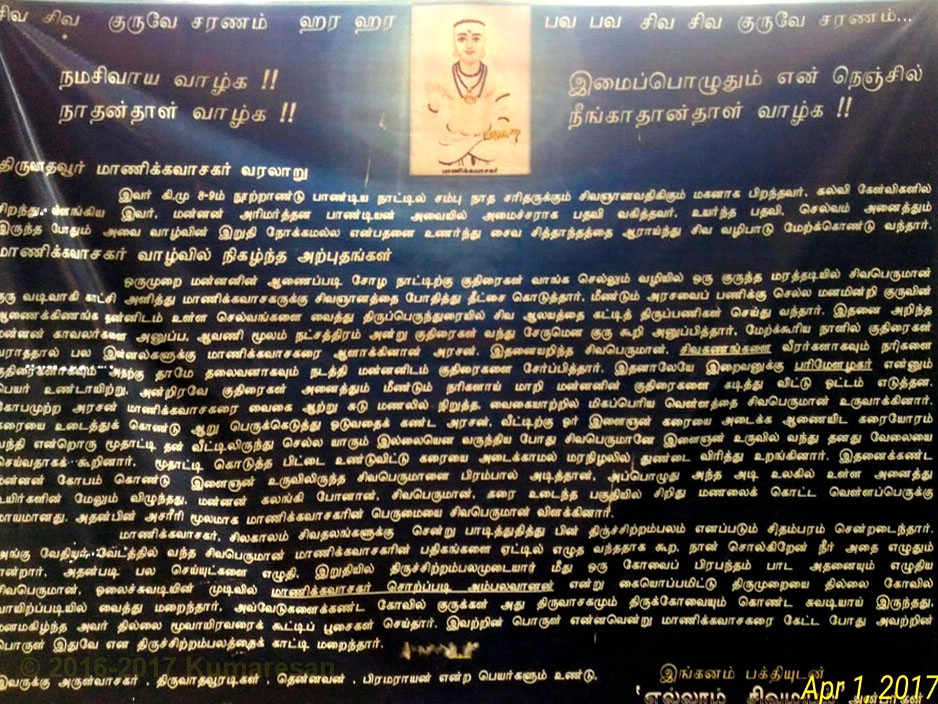 சிவ சிவ குருவே சரணம் ஹர ஹர பவ பவ சிவ சிவ குருவே சரணம்...
நமசிவாய வாழ்க !!
நாதன்தாள் வாழ்க !!
இமைப்பொழுதும் என் நெஞ்சில்
நீங்காதான்தாள் வாழ்க !!
மாணிக்கவாசகர்
திருவாதவூர் மாணிக்கவாசகர் வரலாறு
இவர் கி.மு 8-9ம் நூற்றாண்டு பாண்டிய நாட்டில் சம்பு நாத சரிதருக்கும் சிவஞானவதிகிகும் மகனாக பிறந்தவர். கல்வி கேள்விகளில்
சிறந்து விளங்கிய இவர், மன்னன் அரிமர்த்தன பாண்டியன் அவையில் அமைச்சராக பதவி வகித்தவர். உயர்ந்த பதவி, செல்வம் அனைத்தும்
இருந்த போதும் அவை வாழ்வின் இறுதி நோக்கமல்ல என்பதனை உணர்ந்து சைவ சித்தாந்தத்தை ஆராய்ந்து சிவ வழிபாடு மேற்க்கொண்டு வந்தார்.
மாணிக்கவாசகர் வாழ்வில் நிகழ்ந்த அற்புதங்கள்
ஒருமுறை மன்னனின் ஆணைப்படி சோழ நாட்டிற்கு குதிரைகள் வாங்க செல்லும் வழியில் ஒரு குருந்த மரத்தடியில் சிவபெருமான்
குரு வடிவாகி காட்சி அளித்து மாணிக்கவாசகருக்கு சிவஞானத்தை போதித்து தீட்சை கொடுத்தார். மீண்டும் அரசவைப் பணிக்கு செல்ல மனமின்றி குருவின்
ஆணைக்கிணங்க தன்னிடம் உள்ள செல்வங்களை வைத்து திருப்பெருந்துறையில் சிவ ஆலயத்தை கட்டித் திருப்பணிகள் செய்து வந்தார். இதனை அறிந்த
மன்னன் காவலர்களை அனுப்ப, ஆவணி மூலம் நட்சத்திரம் அன்று குதிரைகள் வந்து சேருமென குரு கூறி அனுப்பித்தார். மேற்க்கூரிய நாளில் குதிரைகள்
வராததால் பல இன்னல்களுக்கு மாணிக்கவாசகரை ஆளாக்கினான் அரசன். இதனையறிந்த சிவபெருமான், சிவகணங்களை வீரர்களாகவும் நரிகளை
குதிரைகளாகவும் அதற்கு தாமே தலைவனாகவும் நடத்தி மன்னனிடம் குதிரைகளை சேர்ப்பித்தார். இதனாலேயே இறைவனுக்கு பரிமேலழகர் என்னும்
பெயர் உண்டாயிற்று. அன்றிரவே குதிரைகள் அனைத்தும் மீண்டும் நரிகளாய் மாறி மன்னனின் குதிரைகளை கடித்து விட்டு ஓட்டம் எடுத்தன.
கோபமுற்ற அரசன் மாணிக்கவாசகரை வைகை ஆற்று சுடு மணலில் நிறுத்த, வைகையாற்றில் மிகப்பெரிய வெள்ளத்தை சிவபெருமான் உருவாக்கினார்.
கரையை உடைத்துக் கொண்டு ஆறு பெருக்கெடுத்து ஓடுவதைக் கண்ட அரசன், வீட்டிற்கு ஓர் இளைஞன் கரையை அடைக்க ஆணையிட கரையோரம்
வந்தி என்றொரு மூதாட்டி தன் வீட்டிலிருந்து செல்ல யாரும் இல்லையென வருந்திய போது சிவபெருமானே இளைஞன் உருவில் வந்து தனது வேலையை
செய்வதாகக் கூறினார். மூதாட்டி கொடுத்த பிட்டை உண்டுவிட்டு கரையை அடைக்காமல் மரநிழலில் துண்டை விரித்து உறங்கினார். இதனைக்கண்ட
மன்னன் கோபம் கொண்டு இளைஞன் உருவிலிருந்த சிவபெருமானை பிரம்பால் அடித்தான். அப்பொழுது அந்த அடி உலகில் உள்ள அனைத்து
உயிர்களின் மேலும் விழுந்தது. மன்னன் கலங்கி போனான். சிவபெருமான், கரை உடைந்த பகுதியில் சிறிது மணலைக் கொட்ட வெள்ளப்பெருக்கு
மாயமானது. அதன்பின் அசரீரி மூலமாக மாணிக்கவாசகரின் பெருமையை சிவபெருமான் விளக்கினார்.
மாணிக்கவாசகர், சிலகாலம் சிவதலங்களுக்கு சென்று பாடித்துதித்து பின் திருச்சிற்றம்பலம் எனப்படும் சிதம்பரம் சென்றடைந்தார்.
அங்கு வேதியர் வேடத்தில் வந்த சிவபெருமான் மாணிக்கவாசகரின் பதிகங்களை ஏட்டில் எழுத வந்ததாக கூற, நான் சொல்கிறேன் நீர் அதை எழுதும்
என்றார். அதன்படி பல செய்யுட்களை எழுதி, இறுதியில் திருச்சிற்றம்பலமுடையார் மீது ஒரு கோவைப் பிரபந்தம் பாட அதனையும் எழுதிய
சிவபெருமான், ஓலைச்சுவடியின் முடிவில் மாணிக்கவாசகர் சொற்ப்படி அம்பலவாணன் என்று கையொப்பமிட்டு திருமுறையை தில்லை கோவில்
வாயிற்ப்படியில் வைத்து மறைந்தார், அவ்வேடுகளைக்கண்ட கோவில் குருக்கள் அது திருவாசகமும் திருக்கோவையும் கொண்ட சுவடியாய் இருந்தது.
மனமகிழ்ந்த அவர் தில்லை மூவாயிரவரைக் கூட்டிப் பூசைகள் செய்தார். இவற்றின் பொருள் என்னவென்று மாணிக்கவாசகரை கேட்ட போது அவற்றின்
பொருள் இதுவே என திருச்சிற்றம்பலத்தைக் காட்டி மறைந்தார்.
© 2016-2017 Kumaresan
இவருக்கு அருள்வாசகர் , திருவாதவூரடிகள் , தென்னவன் , பிரமராயன் என்ற பெயர்களும் உண்டு.
இங்கனம் பக்தியுடன்
'எல்லாம் சிவமயம்
Apr 1, 2017